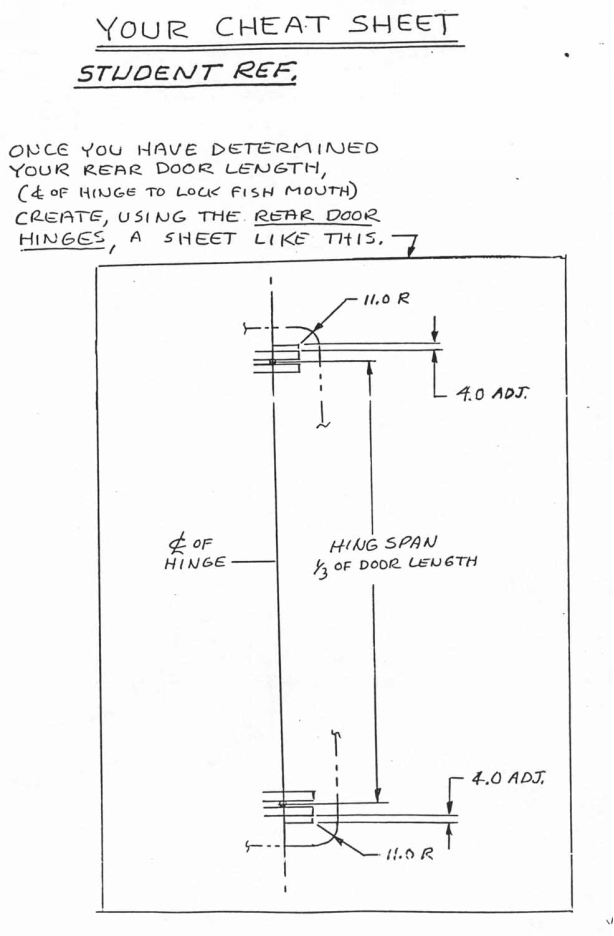 YOUR CHEAT SHEET
STUDENT REF.
ONCE YOU HAVE DETERMINED
YOUR REAR DOOR LENGTH,
(℄ OF HINGE TO LOCK FISH MOUTH)
CREATE, USING THE REAR DOOR
HINGES, A SHEET LIKE THIS.
11.0 R
4.0 ADJ.
℄ OF
HINGE
HING SPAN
1/3 OF DOOR LENGTH
4.0 ADJ.
11.0 R